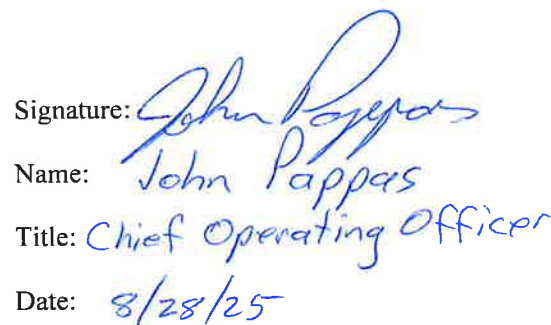 Signature: John Pappas
Name: John Pappas
Title: Chief Operating Officer
Date: 8/28/25